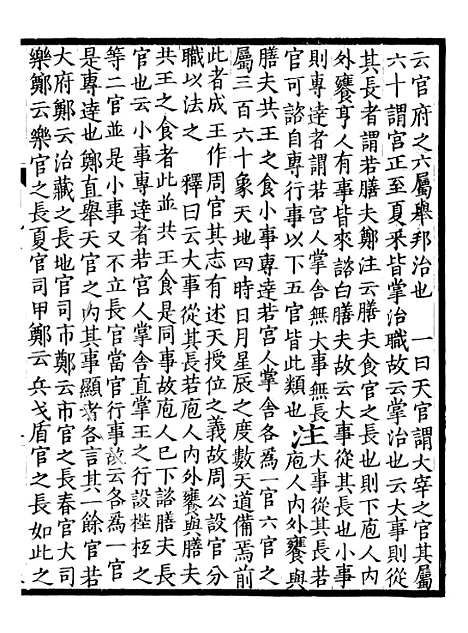 云官府之六屬舉邦治也　一曰天官謂大宰之官其屬
六十謂宫正至夏采皆掌治職故云掌治也云大事則從
其長者謂若膳夫鄭注云膳夫食官之長也則下庖人内
外饔亨人有事皆來諮白膳夫故云大事從其長也小事
則專達者謂若宫人掌舍無大事無長大事從其長若
官可諮自專行事以下五官皆此類也　注庖人内外饔與
膳夫共王之食小事專達若宫人掌舍各爲一官六官之
屬三百六十象天地四時日月星辰之度數天道備焉前
此者成王作周官其志有述天授位之義故周公設官分
職以法之　釋曰云大事從其長若庖人内外饔與膳夫
共王之食者此並共王食是同事故庖人已下諮膳夫長
官也云小事專達者若宫人掌舍直掌王之行設梐枑之
等二官並是小事又不立長官當官行事故云各為一官
是專達也鄭直舉天官之内其事顯者各言其一餘官若
大府鄭云治藏之長地官司市鄭云市官之長春官大司
樂鄭云樂官之長夏官司甲鄭云兵戈盾官之長如此之